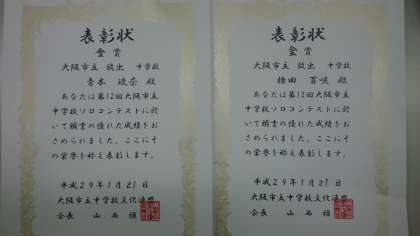 表彰状
金賞
大阪市立 放出 中学校
青木 殿
あなたは第12回大阪市立
中学校ソロコンテストに於
いて頭書の優れた成績をお
さめられました。ここにそ
の栄誉を称え表彰します。
平成29年1月21日
大阪市立中学校文化連盟
会長 山 雄
表彰状
金賞
大阪市立 放出 中学校
横田 百咲 殿
あなたは第12回大阪市立
中学校ソロコンテストに於
いて頭書の優れた成績をお
さめられました。ここにそ
の栄誉を称え表彰します。
平成29年1月21日
大阪市立中学校文化連盟
会長 山 雄